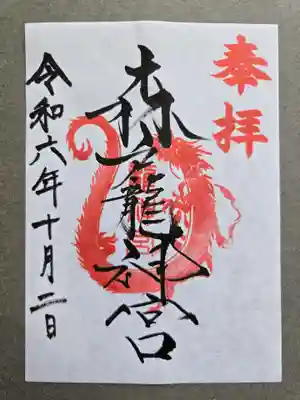 奉拝
龍神宮
令和六年十月二日